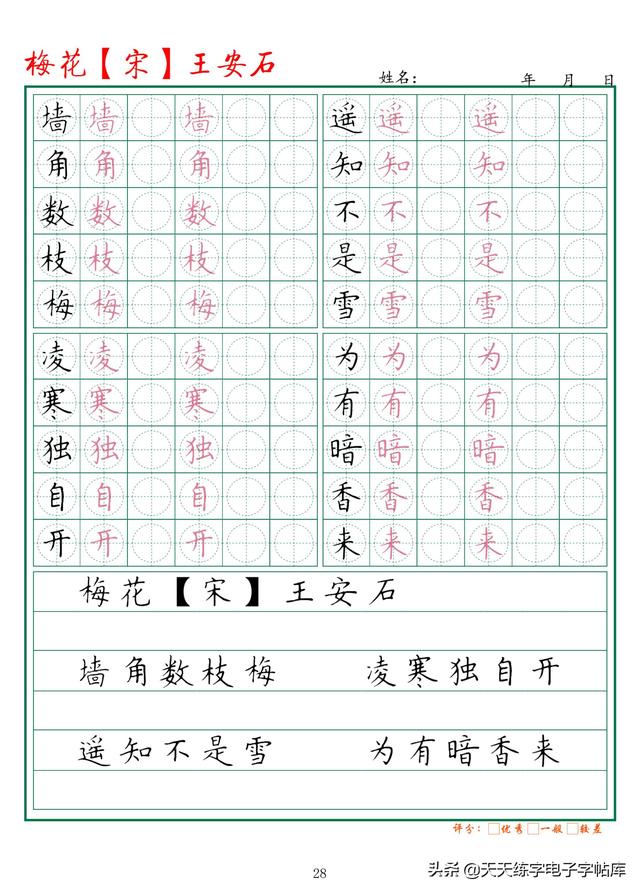 梅花【宋】王安石
姓名： 年 月 日
墙 墙 墙 遥 遥 遥
角 角 角 知 知 知
数 数 数 不 不 不
枝 枝 枝 是 是 是
梅 梅 梅 雪 雪 雪
凌 凌 凌 为 为 为
寒 寒 寒 有 有 有
独 独 独 暗 暗 暗
自 自 自 香 香 香
开 开 开 来 来 来
梅花【宋】王安石
墙角数枝梅 凌寒独自开
遥知不是雪 为有暗香来
评分：□优秀□一般□较差
28
头条@天天练字电子字帖库